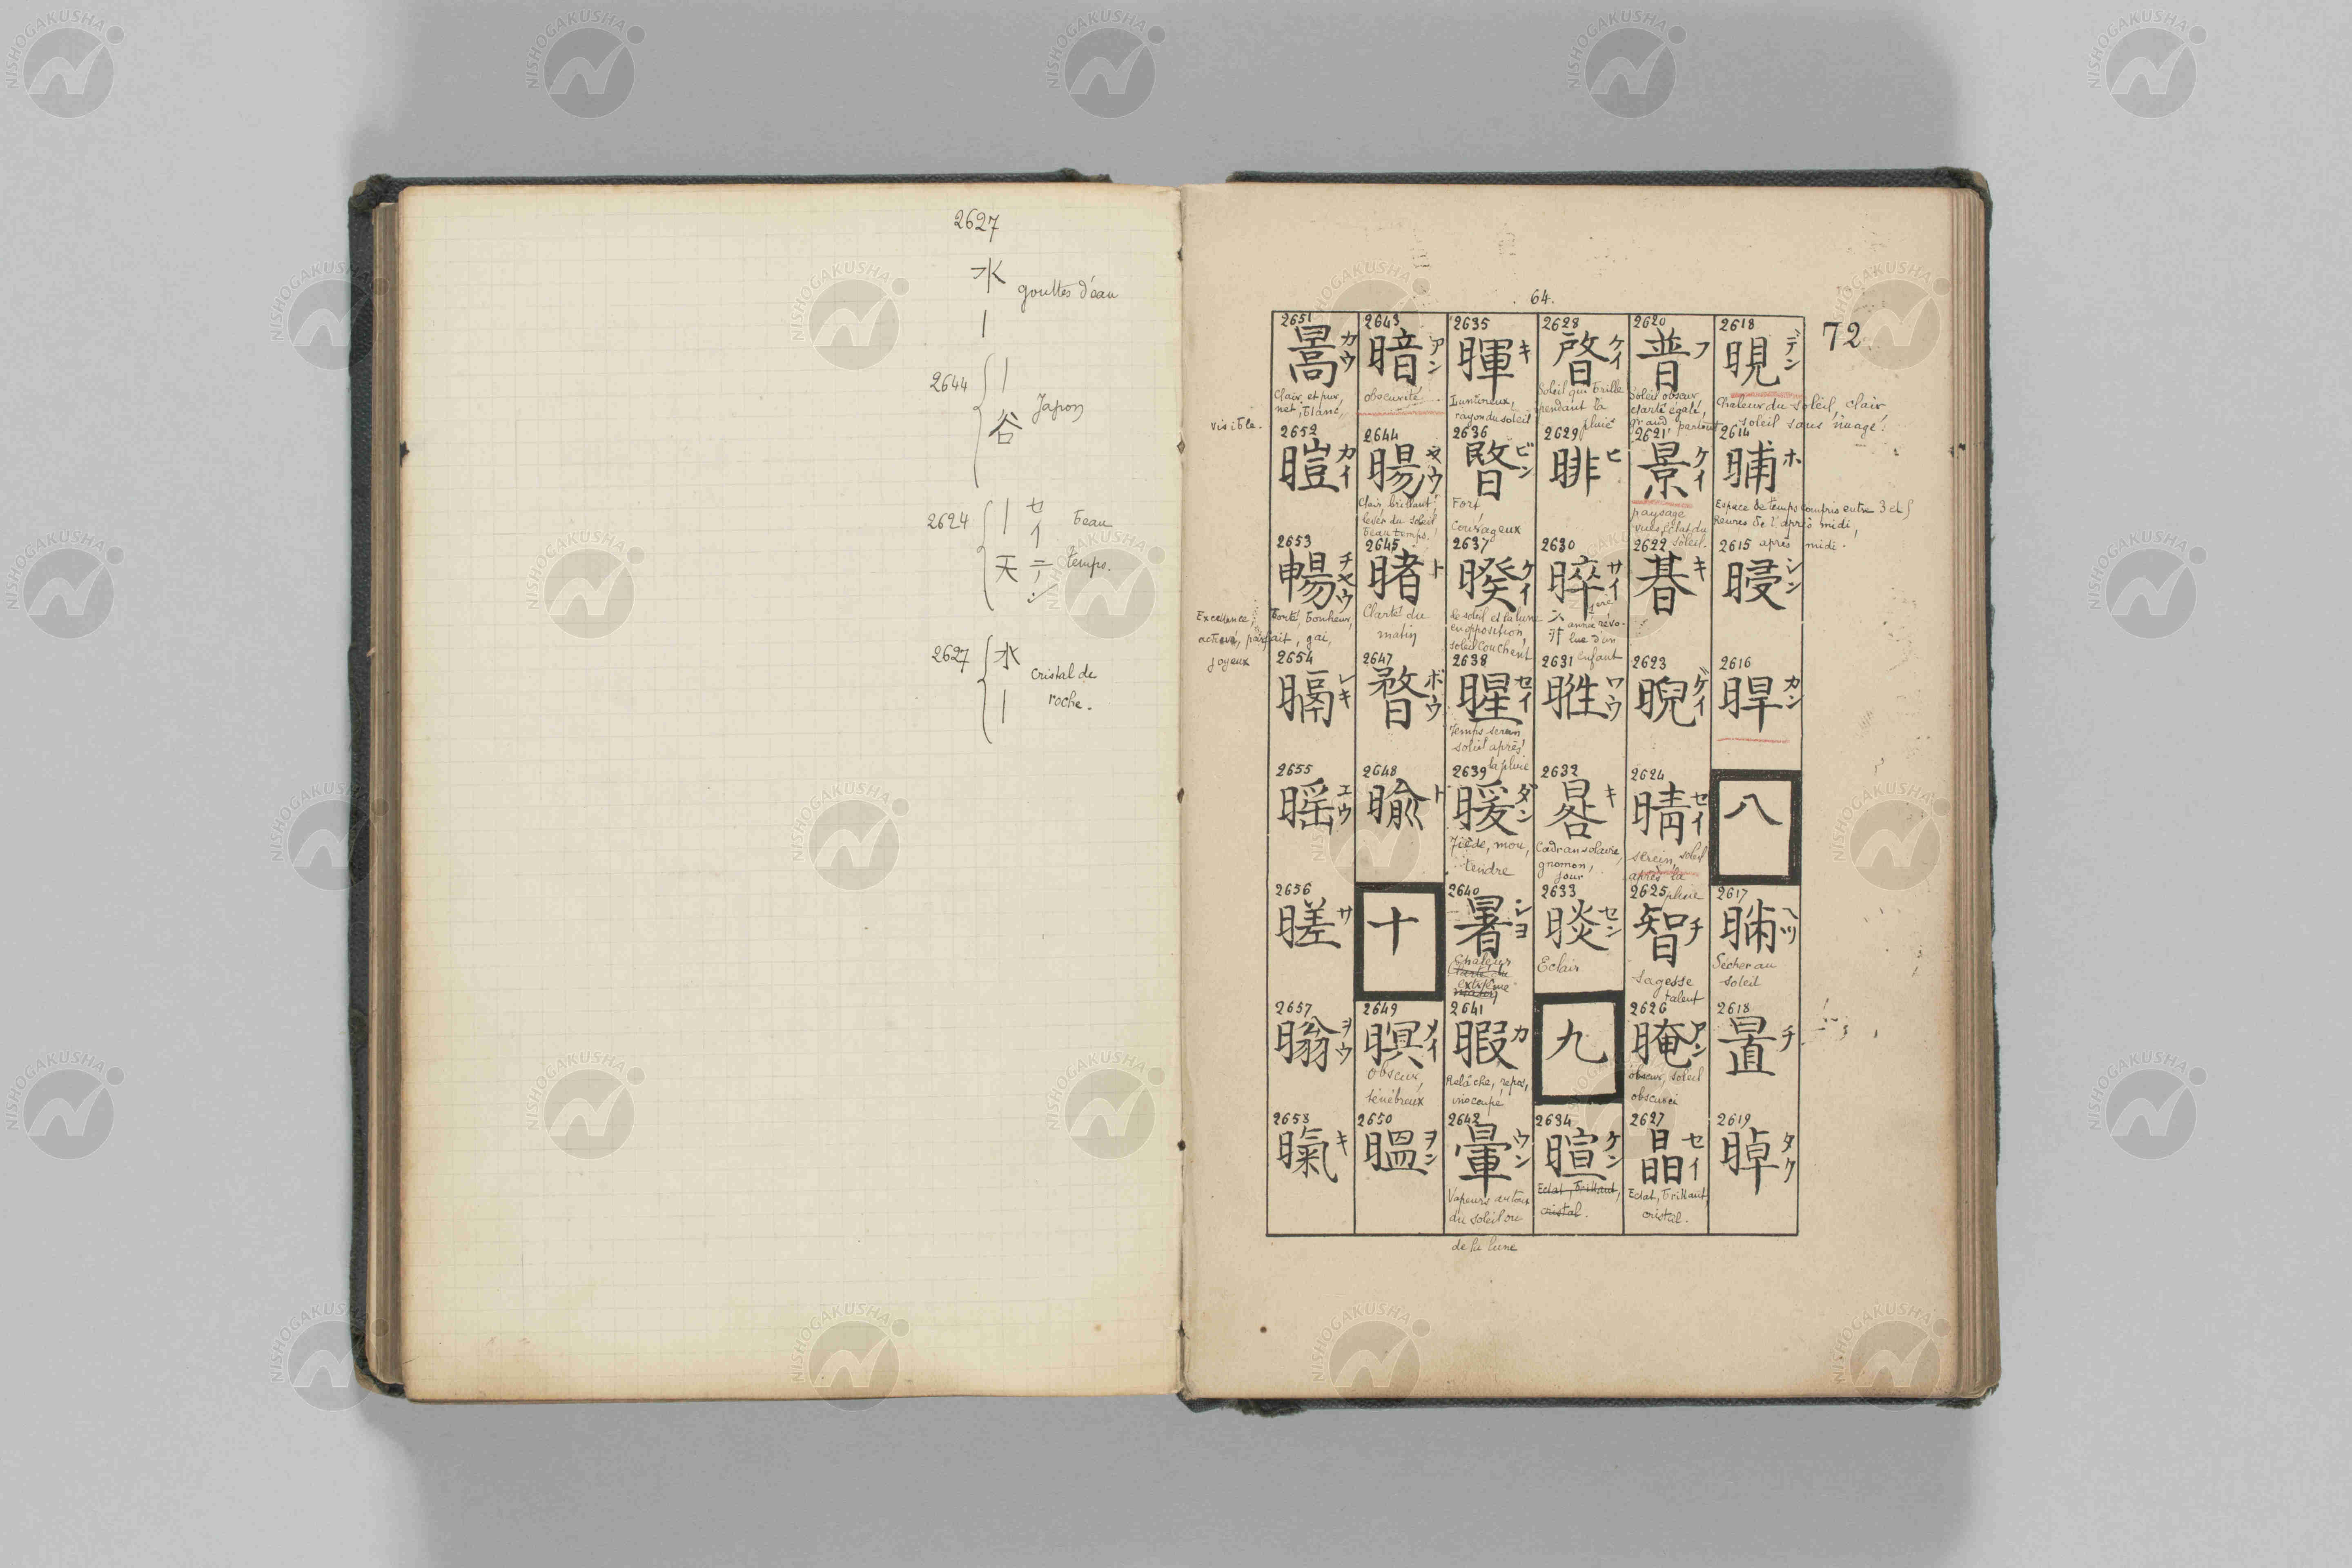 2627
水 gouttes d'eau
|
2644 | 谷 Japon
2624 | セイ 天 テン beau temps.
2627 水 | cristal de roche.
64.
72
2618 晛 デン
Chaleur du soleil, clair
soleil sans nuage.
2614 晡 ホ
Espace de temps compris entre 3 et 5
heures de l'après midi,
après midi.
2615 晸 シン
2616 晘 カン
八
2617 ヘツ
Sécher au
soleil
2618 チ
2619 晫 タク
2620 普 フ
Soleil obscur
clarté égale,
grand partout
2621 景 ケイ
paysage
vue, éclat du
soleil.
2622 朞 キ
2623 睨 ゲイ
2624 晴 セイ
serein, soleil
après la
pluie
2625 智 チ
Sagesse
talent
2626 晻 アン
obscur, soleil
obscurci
2627 晶 セイ
Eclat, brillant,
cristal.
2628 晵 ケイ
Soleil qui brille
pendant la
pluie
2629 暃 ヒ
2630 晬 サイ
année révo-
lue d'un
enfant
2631 暀 ワウ
2632 晷 キ
Cadran solaire,
gnomon,
jour
2633 晱 セン
Eclair
九
2634 暄 ケン
Eclat, brillant,
cristal.
2635 暉 キ
Lumineux,
rayon du soleil
2636 暋 ビン
Fort,
courageux
2637 暌 ケイ
Le soleil et la lune
en opposition,
soleil couchant
2638 暒 セイ
Temps serein
soleil après
la pluie
2639 暖 ダン
Tiède, mou,
tendre
2640 暑 シヨ
Chaleur
Clarté du
extrême
matin
2641 暇 カ
Relâche, repos,
inoccupé
2642 暈 ウン
Vapeurs autour
du soleil ou
de la lune
2643 暗 アン
obscurité
2644 暘 ヤウ
Clair, brillant,
lever du soleil
beau temps.
2645 暏 ト
Clarté du
matin
2647 暓 ボウ
2648 ト
十
2649 暝 メイ
obscur,
ténébreux
2650 ヲン
2651 暠 カウ
Clair et pur,
net, blanc,
visible.
2652 暟 カイ
2653 暢 チヤウ
Excellence, bonté, bonheur,
achevé, parfait, gai,
joyeux
2654 レキ
2655 暚 エウ
2656 サ
2657 暡 ヲウ
2658 暣 キ
NISHOGAKUSHA